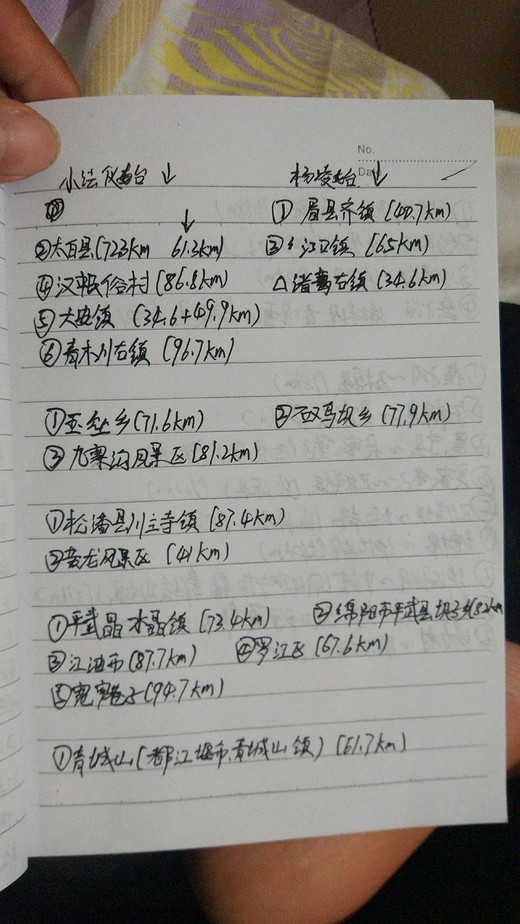 No.
小法仪出台 ↓ 杨凌出台 ↓
① 眉县齐镇 (40.7km)
③太白县(72.3km 61.3km) ② 江口镇 (65km)
④汉 村 (86.8km) △诸葛古镇 (34.6km)
⑤大安镇 (34.6+49.9km)
⑥青木川古镇 (96.7km)
①玉垒乡(71.6km) ②双河 乡(77.9km)
③九寨沟风景区(81.2km)
①松潘县川主寺镇 (87.4km)
②黄龙风景区 (41km)
①平武 水晶镇 (73.4km) ②绵阳市平武县坝子乡
③江油市(87.7km) ④罗江区 (67.6km)
⑤宽窄巷子(94.7km)
①青城山(都江堰市,青城山镇) (61.7km)